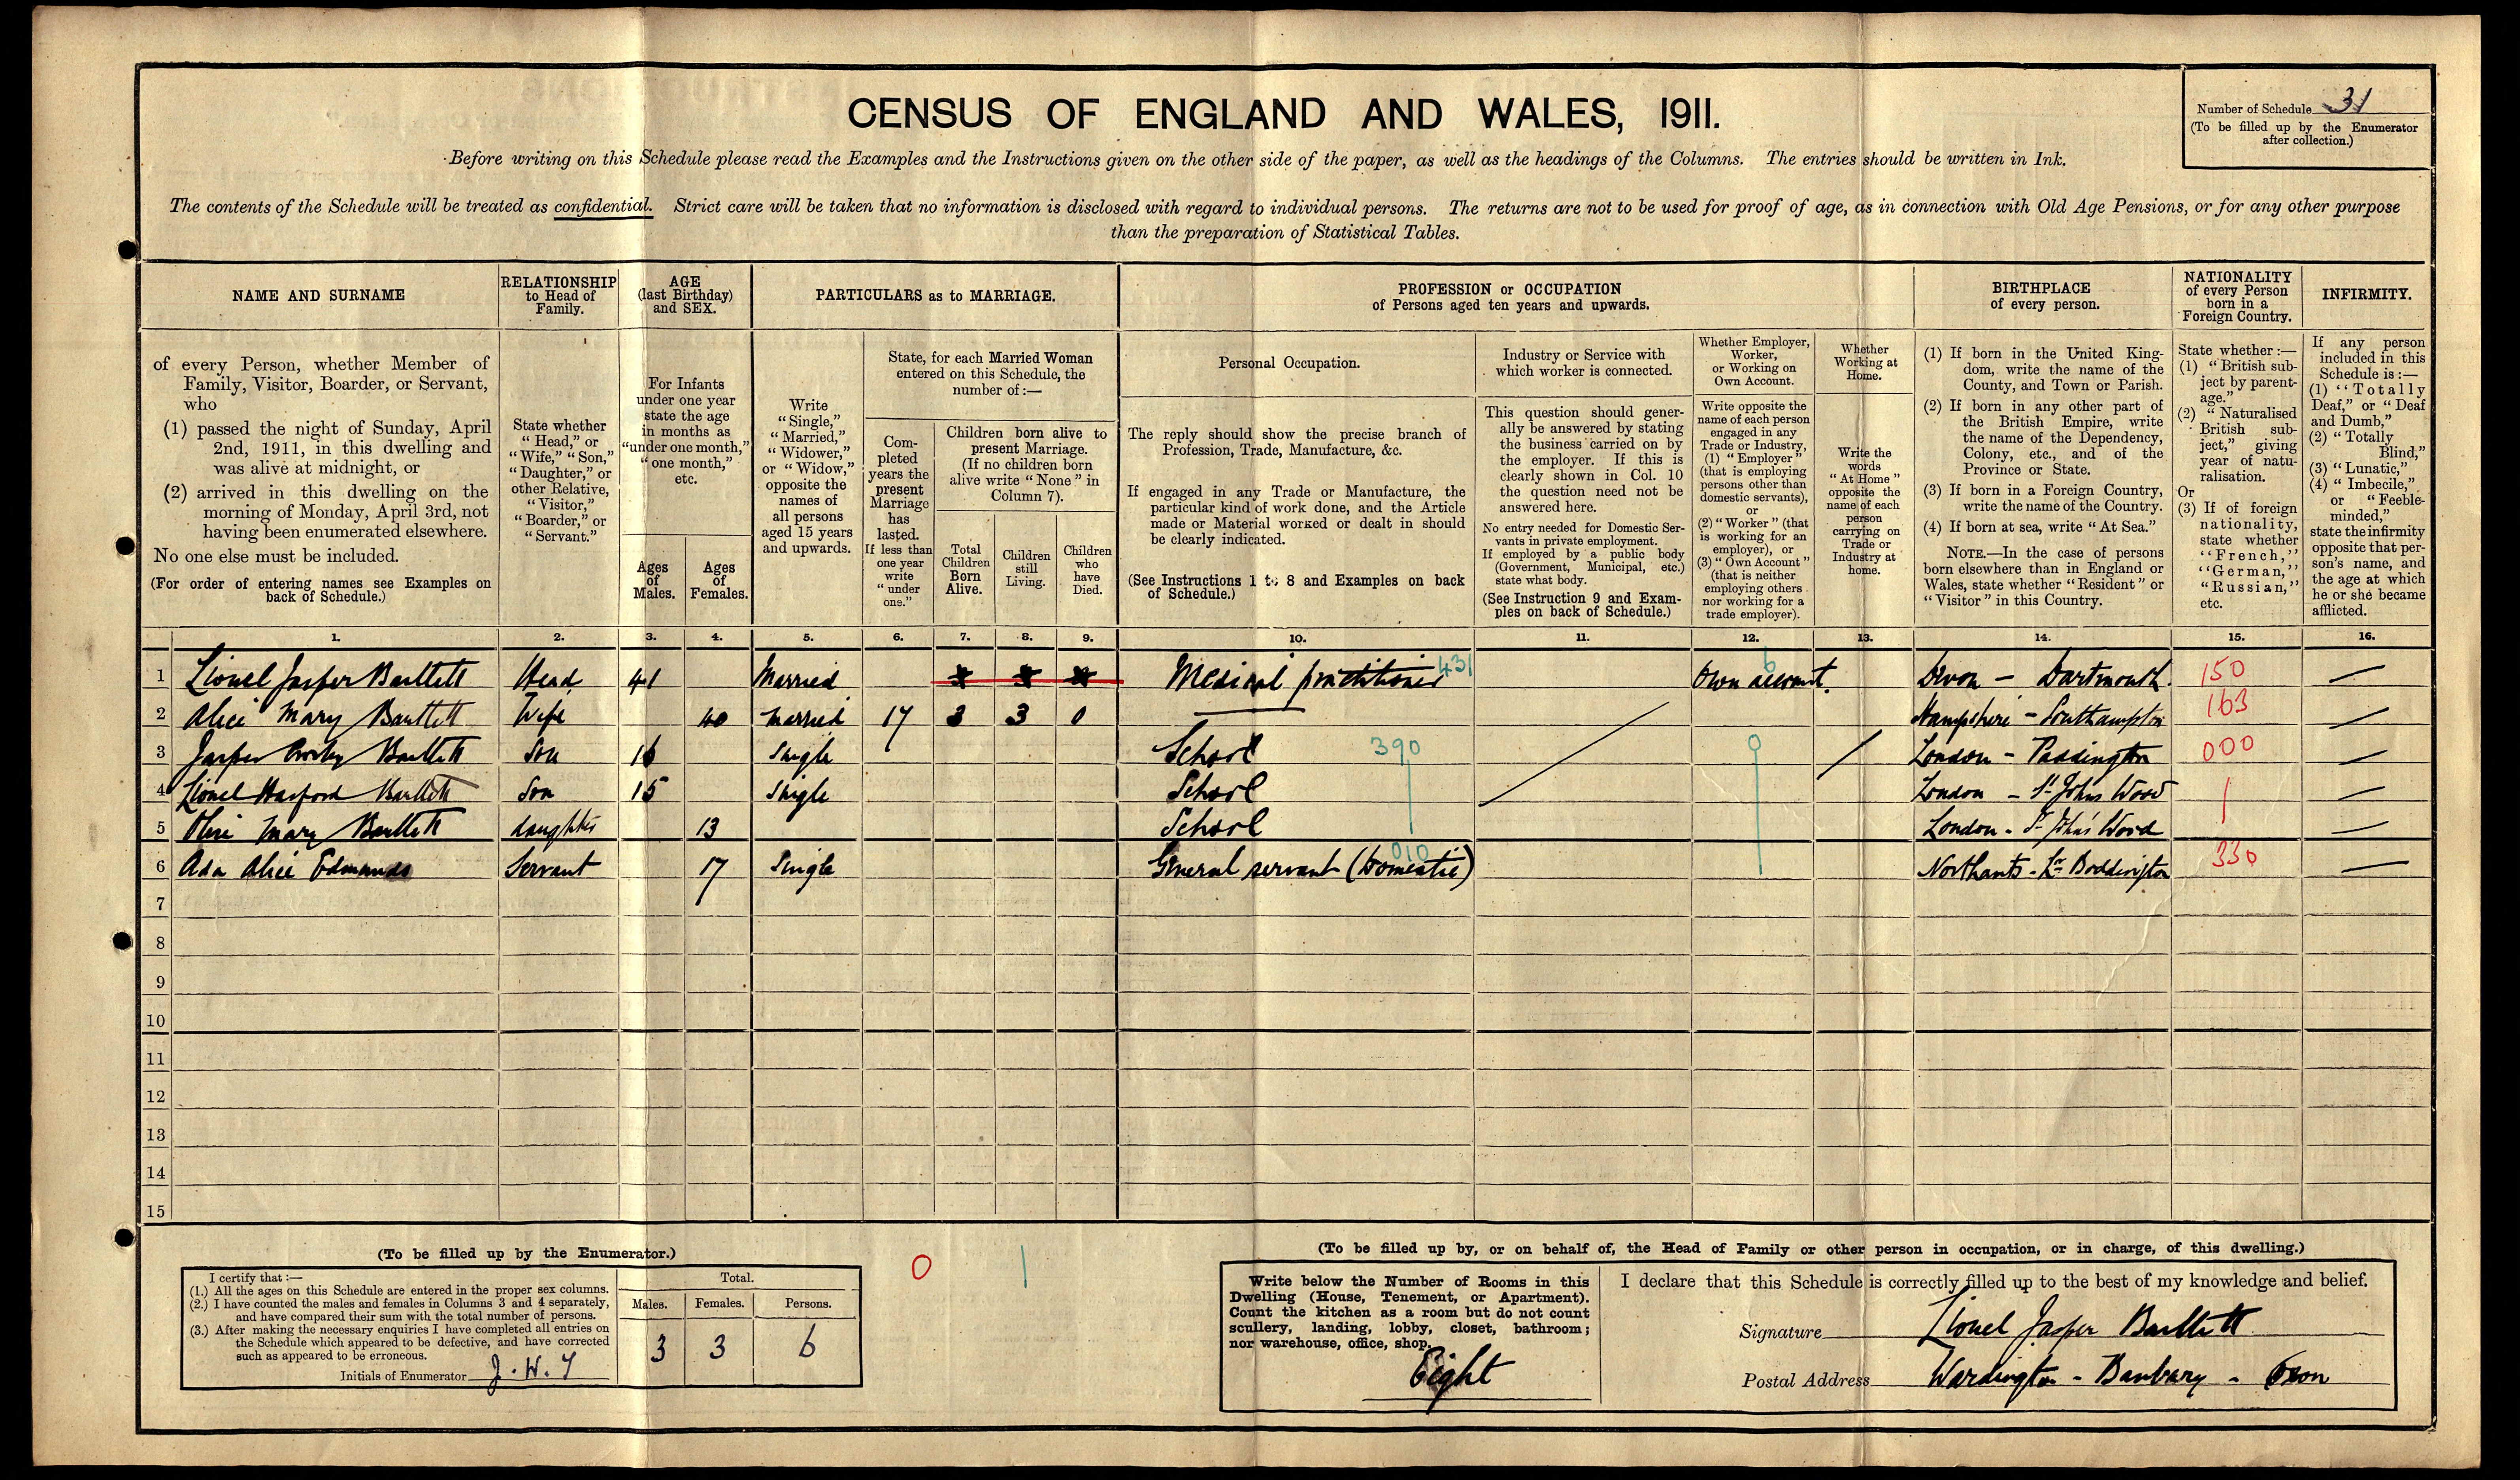 CENSUS OF ENGLAND AND WALES, 1911.
Number of Schedule 31
(To be filled up by the Enumerator
after collection.)
Before writing on this Schedule please read the Examples and the Instructions given on the other side of the paper, as well as the headings of the Columns. The entries should be written in Ink.
The contents of the Schedule will be treated as confidential. Strict care will be taken that no information is disclosed with regard to individual persons. The returns are not to be used for proof of age, as in connection with Old Age Pensions, or for any other purpose
than the preparation of Statistical Tables.
NAME AND SURNAME
of every Person, whether Member of
Family, Visitor, Boarder, or Servant,
who
(1) passed the night of Sunday, April
2nd, 1911, in this dwelling and
was alive at midnight, or
(2) arrived in this dwelling on the
morning of Monday, April 3rd, not
having been enumerated elsewhere.
No one else must be included.
(For order of entering names see Examples on
back of Schedule.)
RELATIONSHIP
to Head of
Family.
State whether
"Head," or
"Wife," "Son,"
"Daughter," or
other Relative,
"Visitor,"
"Boarder," or
"Servant."
AGE
(last Birthday)
and SEX.
For Infants
under one year
state the age
in months as
"under one month,"
"one month,"
etc.
Ages
of
Males.
Ages
of
Females.
PARTICULARS as to MARRIAGE.
Write
"Single,"
"Married,"
"Widower,"
or "Widow,"
opposite the
names of
all persons
aged 15 years
and upwards.
State, for each Married Woman
entered on this Schedule, the
number of :—
Com-
pleted
years the
present
Marriage
has
lasted.
If less than
one year
write
"under
one."
Children born alive to
present Marriage.
(If no children born
alive write "None" in
Column 7).
Total
Children
Born
Alive.
Children
still
Living.
Children
who
have
Died.
PROFESSION or OCCUPATION
of Persons aged ten years and upwards.
Personal Occupation.
The reply should show the precise branch of
Profession, Trade, Manufacture, &c.
If engaged in any Trade or Manufacture, the
particular kind of work done, and the Article
made or Material worked or dealt in should
be clearly indicated.
(See Instructions 1 to 8 and Examples on back
of Schedule.)
Industry or Service with
which worker is connected.
This question should gener-
ally be answered by stating
the business carried on by
the employer. If this is
clearly shown in Col. 10
the question need not be
answered here.
No entry needed for Domestic Ser-
vants in private employment.
If employed by a public body
(Government, Municipal, etc.)
state what body.
(See Instruction 9 and Exam-
ples on back of Schedule.)
Whether Employer,
Worker,
or Working on
Own Account.
Write opposite the
name of each person
engaged in any
Trade or Industry,
(1) "Employer"
(that is employing
persons other than
domestic servants),
or
(2) "Worker" (that
is working for an
employer), or
(3) "Own Account"
(that is neither
employing others
nor working for a
trade employer).
Whether
Working at
Home.
Write the
words
"At Home"
opposite the
name of each
person
carrying on
Trade or
Industry at
home.
BIRTHPLACE
of every person.
(1) If born in the United King-
dom, write the name of the
County, and Town or Parish.
(2) If born in any other part of
the British Empire, write
the name of the Dependency,
Colony, etc., and of the
Province or State.
(3) If born in a Foreign Country,
write the name of the Country.
(4) If born at sea, write "At Sea."
NOTE.—In the case of persons
born elsewhere than in England or
Wales, state whether "Resident" or
"Visitor" in this Country.
NATIONALITY
of every Person
born in a
Foreign Country.
State whether :—
(1) "British sub-
ject by parent-
age."
(2) "Naturalised
British sub-
ject," giving
year of natu-
ralisation.
Or
(3) If of foreign
nationality,
state whether
"French,"
"German,"
"Russian,"
etc.
INFIRMITY.
If any person
included in this
Schedule is :—
(1) "Totally
Deaf," or "Deaf
and Dumb,"
(2) "Totally
Blind,"
(3) "Lunatic,"
(4) "Imbecile,"
or "Feeble-
minded,"
state the infirmity
opposite that per-
son's name, and
the age at which
he or she became
afflicted.
1. 2. 3. 4. 5. 6. 7. 8. 9. 10. 11. 12. 13. 14. 15. 16.
1 Lionel Jasper Bartlett Head 41 Married Medical practitioner 431 Own account. 6 Devon - Dartmouth. 150 —
2 Alice Mary Bartlett Wife 40 Married 17 3 3 0 Hampshire - Southampton 163 —
3 Jasper Bartlett Son 16 Single School 390 0 London - Paddington 000 —
4 Lionel Harford Bartlett Son 15 Single School London - St Johns Wood —
5 Mary Bartlett daughter 13 School London - St John's Wood —
6 Ada Alice Edmunds Servant 17 Single General servant (Domestic) 010 Northants - Lr Boddington 330 —
7
8
9
10
11
12
13
14
15
(To be filled up by the Enumerator.)
I certify that :—
(1.) All the ages on this Schedule are entered in the proper sex columns.
(2.) I have counted the males and females in Columns 3 and 4 separately,
and have compared their sum with the total number of persons.
(3.) After making the necessary enquiries I have completed all entries on
the Schedule which appeared to be defective, and have corrected
such as appeared to be erroneous.
Initials of Enumerator J. W. Y
Total.
Males. Females. Persons.
3 3 6
0 1
(To be filled up by, or on behalf of, the Head of Family or other person in occupation, or in charge, of this dwelling.)
Write below the Number of Rooms in this
Dwelling (House, Tenement, or Apartment).
Count the kitchen as a room but do not count
scullery, landing, lobby, closet, bathroom;
nor warehouse, office, shop.
Eight
I declare that this Schedule is correctly filled up to the best of my knowledge and belief.
Signature Lionel Jasper Bartlett
Postal Address Wardington - Banbury - Oxon